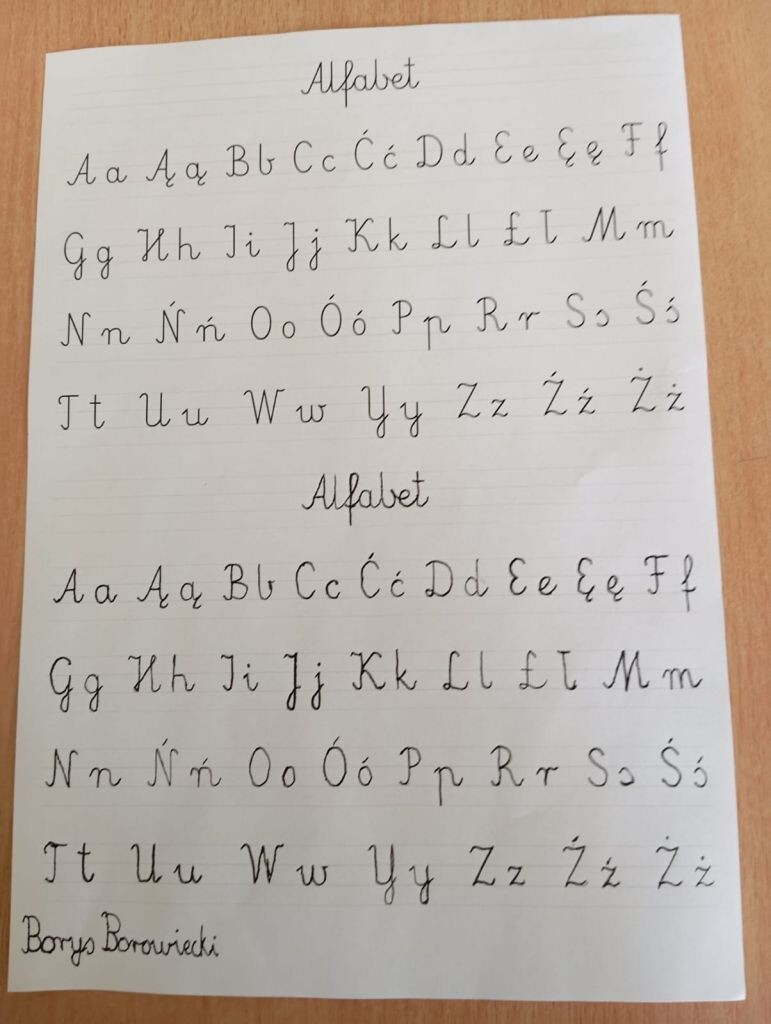 Alfabet
A a Ą ą B b C c Ć ć D d E e Ę ę F f
G g H h I i J j K k L l Ł ł M m
N n Ń ń O o Ó ó P p R r S s Ś ś
T t U u W w Y y Z z Ź ź Ż ż
Alfabet
A a Ą ą B b C c Ć ć D d E e Ę ę F f
G g H h I i J j K k L l Ł ł M m
N n Ń ń O o Ó ó P p R r S s Ś ś
T t U u W w Y y Z z Ź ź Ż ż
Borys Borowiecki